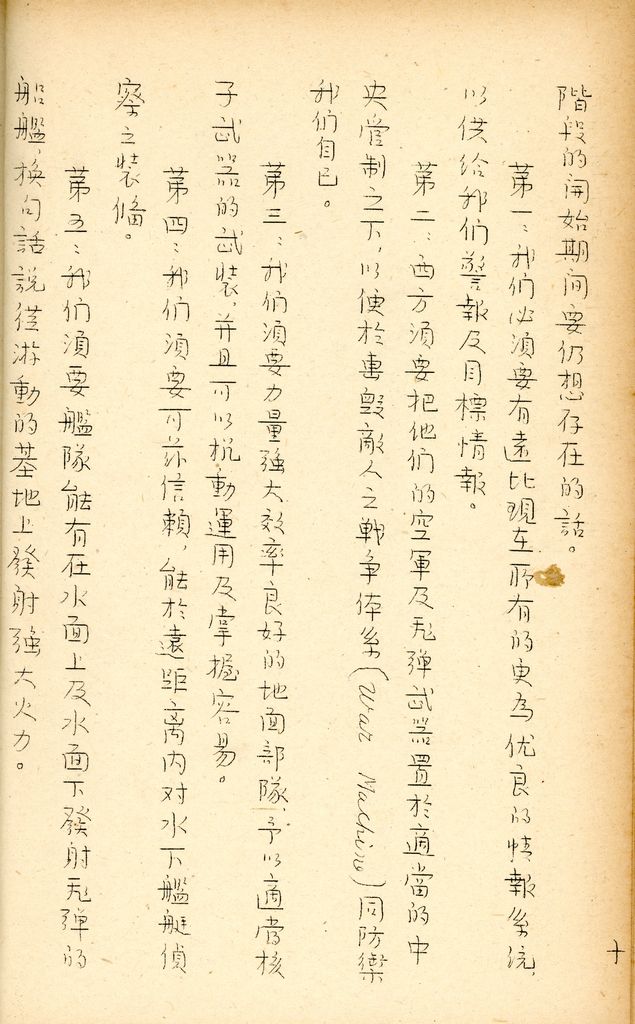 階段的開始期间要仍想存在的話。
第一：我们必須要有遠比現在所有的更為优良的情報系统，
以供给我们警報及目標情報。
第二：西方須要把他们的空軍及飞弹武器置於適當的中
央管制之下，以便於击毁敵人之戰争体系(War Machine)同防禦
我们自己。
第三：我们須要力量强大效率良好的地面部隊，予以適當核
子武器的武装，并且可以机動運用及掌握容易。
第四：我们須要可茲信賴，能於遠距离内对水下艦艇偵
察之装偹。
第五：我们須要艦隊能有在水面上及水面下發射飞弹的
船艦，换句話説從游動的基地上發射强大火力。
十